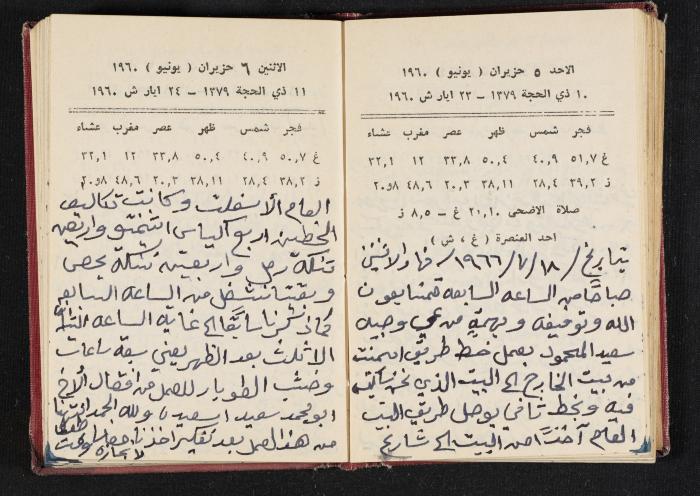 الاحد ٥ حزيران ( يونيو ) ١٩٦٠
١٠ ذي الحجة ١٣٧٩ – ٢٣ ايار ش ١٩٦٠
فجر شمس ظهر عصر مغرب عشاء
غ ٥١,٧ ٤٠,٩ ٥٠,٤ ٣٣,٨ ١٢ ٣٢,١
ز ٣٩,٢ ٢٨,٤ ٣٨,١١ ٢٠,٣ ٤٨,٦ ٢٠و٨
صلاة الاضحى ٢١,١٠ غ – ٨,٥ ز
احد العنصرة ( غ ، ش )
بتاريخ /١٨/٧/١٩٦٦ نهار الاثنين
صباحًا من الساعه السابعه قمنا بعون
الله وتوفيقه وبهمة من عمي وجيه
سعيد المحمود بعمل خط طريق اسمنت
من بيت الخارج الى البيت الذي نحن ساكنين
فيه وخط ثاني يوصل طريق البيت
العام آخذًا من البيت الى شارع
الاثنين ٦ حزيران ( يونيو ) ١٩٦٠
١١ ذي الحجة ١٣٧٩ – ٢٤ ايار ش ١٩٦٠
فجر شمس ظهر عصر مغرب عشاء
غ ٥٠,٧ ٤٠,٩ ٥٠,٤ ٣٣,٨ ١٢ ٣٢,١
ز ٣٨,٢ ٢٨,٤ ٣٨,١١ ٢٠,٣ ٤٨,٦ ٢٠و٨
العام الأسفلت وكانت تكاليف
الخطين اربع اكياس اسمنت واربعين
تنكة رمل واربعين تنكة بحص
وبقينا نشتغل من الساعه السابعه
كما ذكرنا سابقًا الى غاية الساعه
بعد الظهر يعني سبعة ساعات
الطوبار للعمل من افضال الأخ
ابو محمد سعيد اسعيد ولله الحمد
من هذا العمل بعد تفكير اخذنا